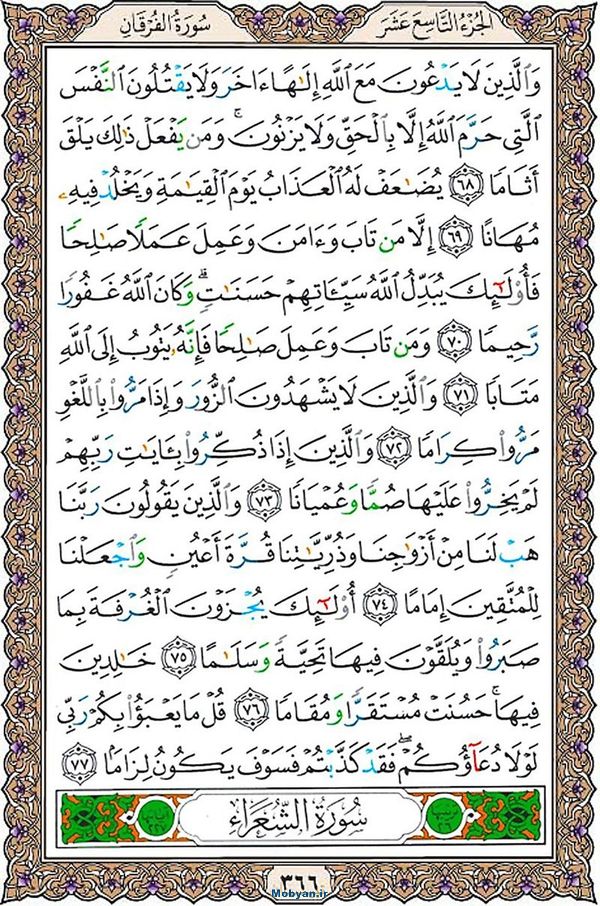 الجزء التاسع عشر
سورة الفرقان
وَٱلَّذِينَ لَا يَدْعُونَ مَعَ ٱللَّهِ إِلَـٰهًا ءَاخَرَ وَلَا يَقْتُلُونَ ٱلنَّفْسَ
ٱلَّتِى حَرَّمَ ٱللَّهُ إِلَّا بِٱلْحَقِّ وَلَا يَزْنُونَ ۚ وَمَن يَفْعَلْ ذَٰلِكَ يَلْقَ
أَثَامًا ﴿٦٨﴾ يُضَـٰعَفْ لَهُ ٱلْعَذَابُ يَوْمَ ٱلْقِيَـٰمَةِ وَيَخْلُدْ فِيهِۦ
مُهَانًا ﴿٦٩﴾ إِلَّا مَن تَابَ وَءَامَنَ وَعَمِلَ عَمَلًا صَـٰلِحًا
فَأُو۟لَـٰٓئِكَ يُبَدِّلُ ٱللَّهُ سَيِّـَٔاتِهِمْ حَسَنَـٰتٍ ۗ وَكَانَ ٱللَّهُ غَفُورًا
رَّحِيمًا ﴿٧٠﴾ وَمَن تَابَ وَعَمِلَ صَـٰلِحًا فَإِنَّهُۥ يَتُوبُ إِلَى ٱللَّهِ
مَتَابًا ﴿٧١﴾ وَٱلَّذِينَ لَا يَشْهَدُونَ ٱلزُّورَ وَإِذَا مَرُّوا۟ بِٱللَّغْوِ
مَرُّوا۟ كِرَامًا ﴿٧٢﴾ وَٱلَّذِينَ إِذَا ذُكِّرُوا۟ بِـَٔايَـٰتِ رَبِّهِمْ
لَمْ يَخِرُّوا۟ عَلَيْهَا صُمًّا وَعُمْيَانًا ﴿٧٣﴾ وَٱلَّذِينَ يَقُولُونَ رَبَّنَا
هَبْ لَنَا مِنْ أَزْوَٰجِنَا وَذُرِّيَّـٰتِنَا قُرَّةَ أَعْيُنٍ وَٱجْعَلْنَا
لِلْمُتَّقِينَ إِمَامًا ﴿٧٤﴾ أُو۟لَـٰٓئِكَ يُجْزَوْنَ ٱلْغُرْفَةَ بِمَا
صَبَرُوا۟ وَيُلَقَّوْنَ فِيهَا تَحِيَّةً وَسَلَـٰمًا ﴿٧٥﴾ خَـٰلِدِينَ
فِيهَا ۚ حَسُنَتْ مُسْتَقَرًّا وَمُقَامًا ﴿٧٦﴾ قُلْ مَا يَعْبَؤُا۟ بِكُمْ رَبِّى
لَوْلَا دُعَآؤُكُمْ ۖ فَقَدْ كَذَّبْتُمْ فَسَوْفَ يَكُونُ لِزَامًۢا ﴿٧٧﴾
سُورَةُ ٱلشُّعَرَاءِ
٣٦٦
Mobyan.ir